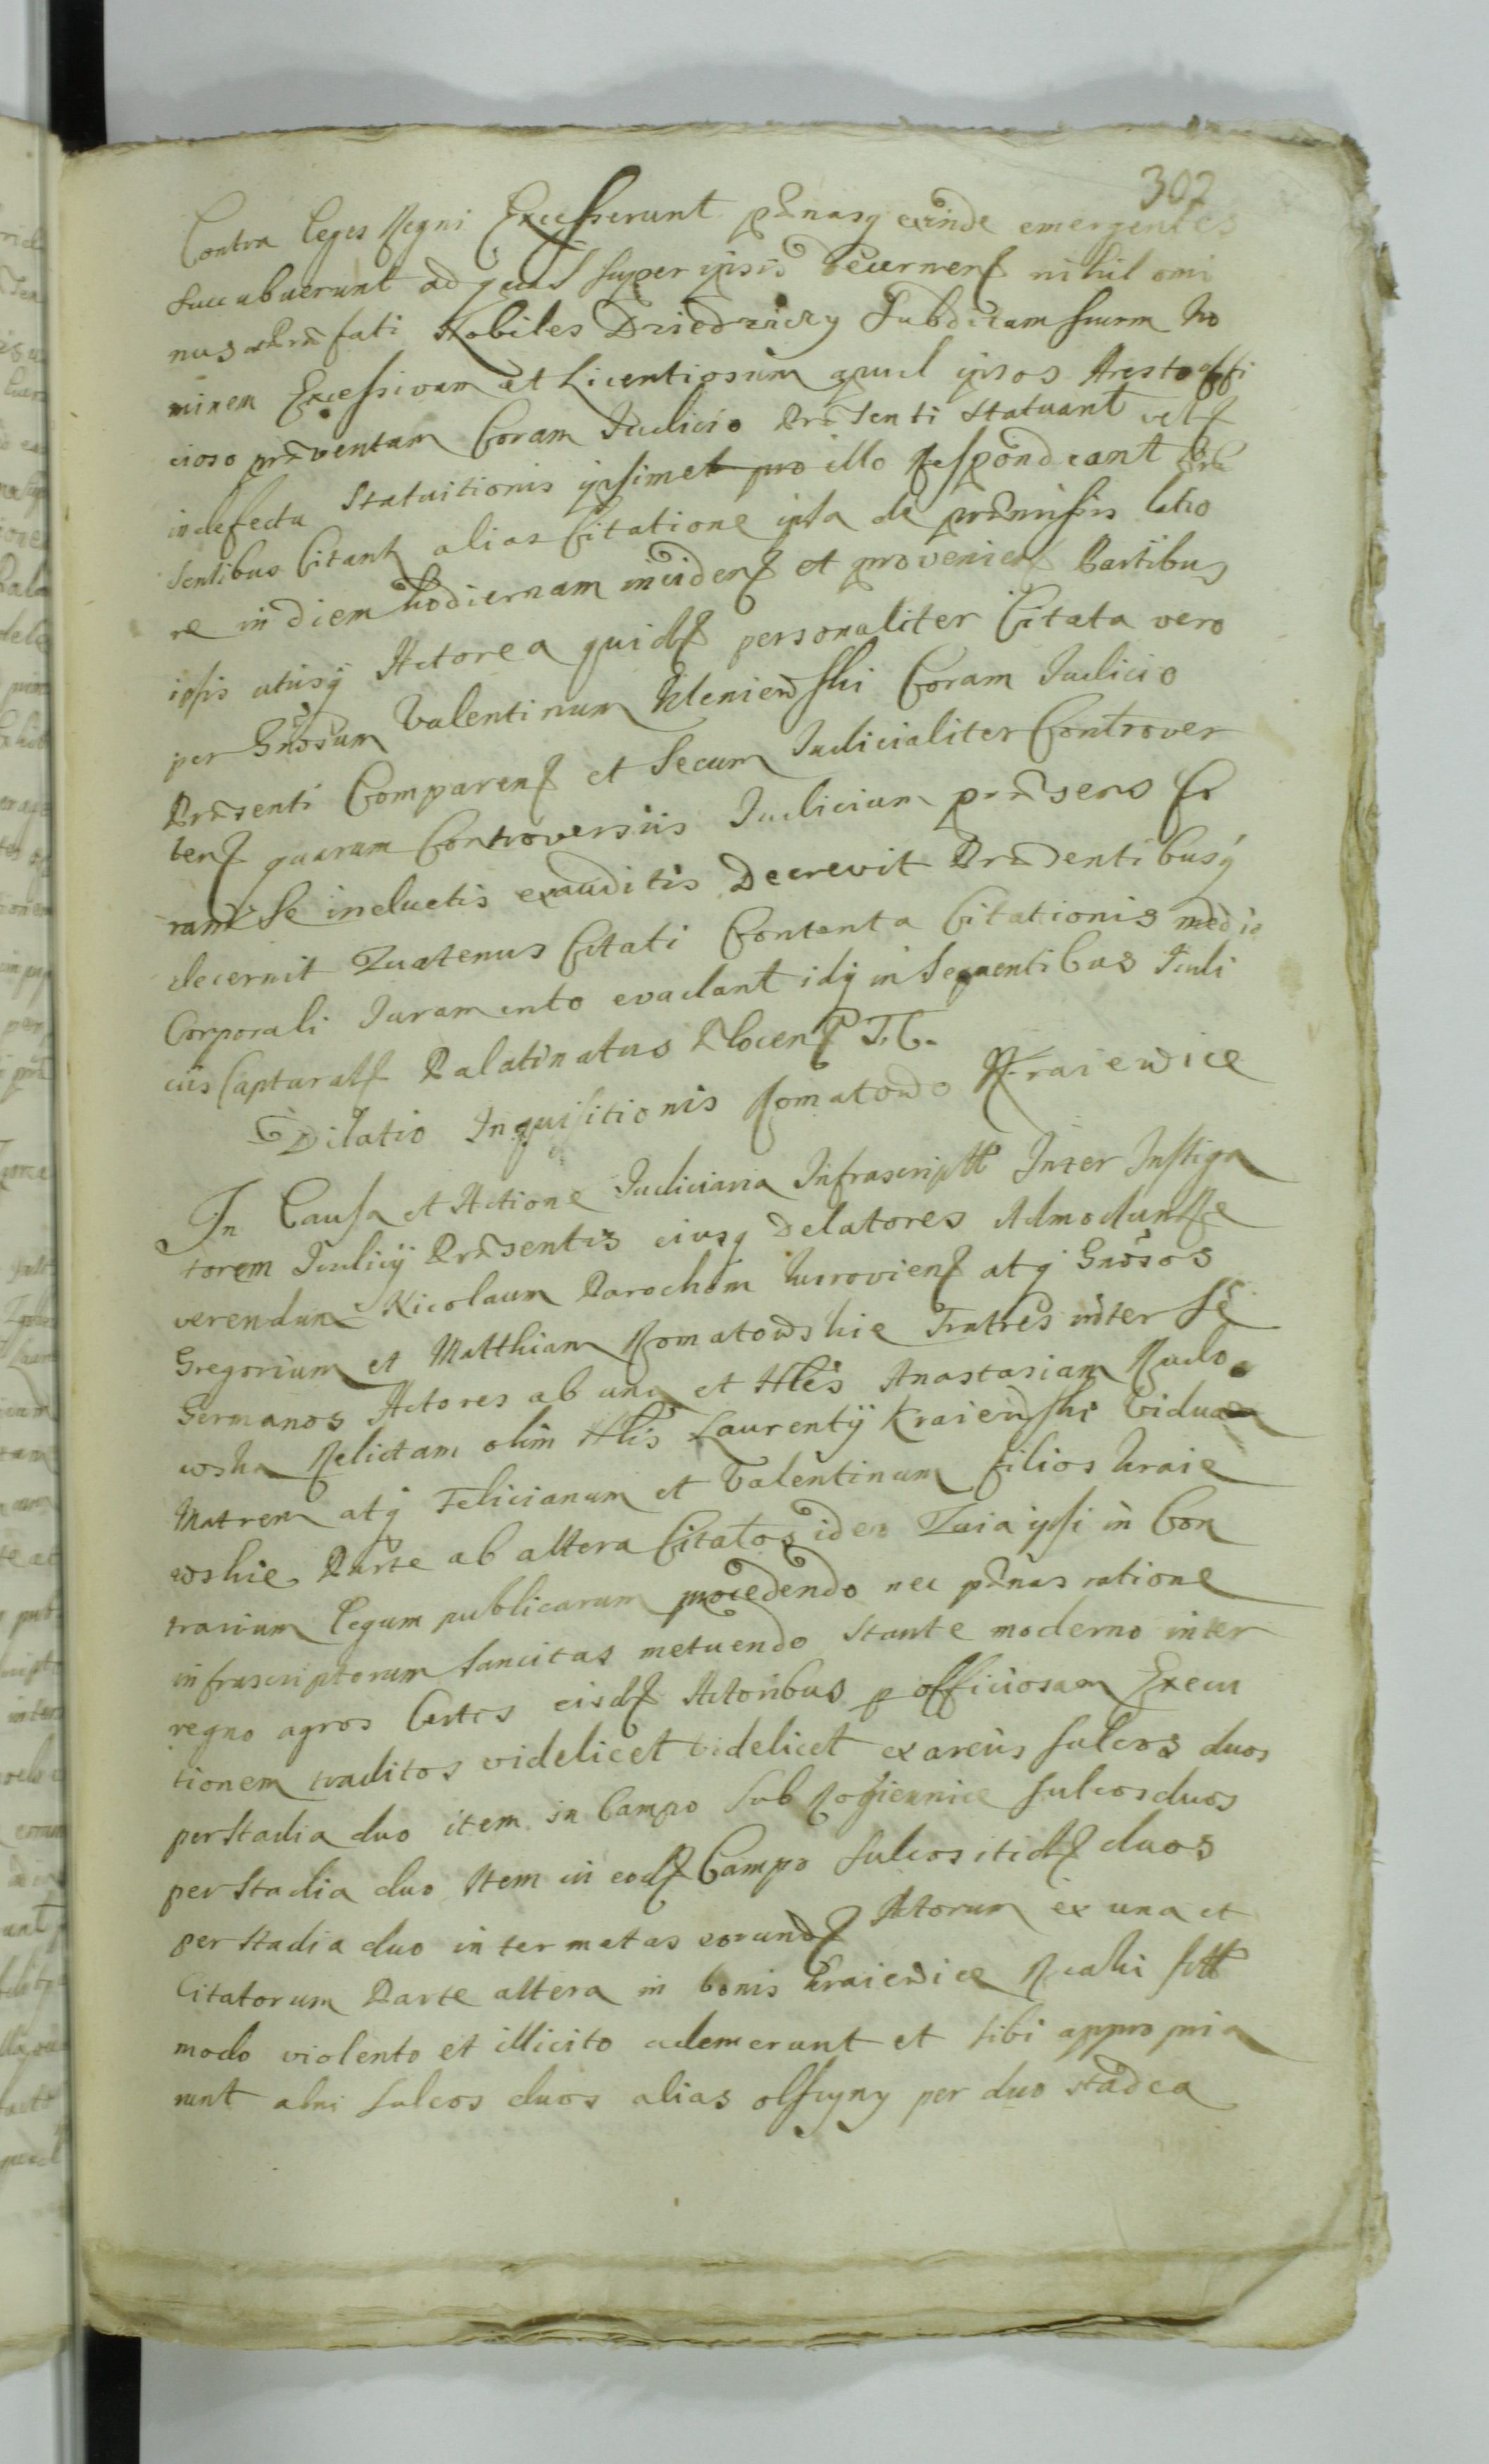 302
Contra Leges Regni Excesserunt pænasq exinde emergentes
succubuerunt ad quas super ipsis decernend nihilomi
nus Præfati Nobiles Dziedziczy Subditum suum ho
minem Excessivum et Licentiosum apud ipsos Aresto offi
cioso præventum Coram Judicio Præsenti statuant vel
in defectu Statuitionis ipsimet pro illo Respondeant Præ
sentibus Citant alias Citatione ipsa de præmissis latio
re in diem hodiernam inciden et provenien Partibus
ipsis utrisq Actorea quid personaliter Citata vero
per Gnosum Valentinum Kleniewski Coram Judicio
Præsenti Comparen et Secum Judicialiter Controver
ten quarum Controversiis Judicium præsens Co
ram Se inductis exauditis Decrevit Præsentibusq
decernit Quatenus Citati Contenta Citationis medio
Corporali Juramento evadant idq in Sequentibus Judi
ciis Captural Palatinatus Plocen T. C.
Dilatio Inquisitionis Romatowo Kraiewice
In Causa et Actione Judiciaria Infrascript Inter Instiga
torem Judicij Præsentis eiusq Delatores Admodum Re
verendum Nicolaum Parochum Kurovien atq Gnosos
Gregorium et Matthiam Romatowskie Fratres inter Se
Germanos Actores ab una et Nles Anastasiam Rudo
wska Relictam olim Nlis Laurentij Kraiewski Viduam
Matrem atq Felicianum et Valentinum filios Kraie
wskie Parte ab altera Citatos ideo Quia ipsi in Con
trarium Legum publicarum procedendo nec pænas ratione
infrascriptorum sancitas metuendo stante moderno inter
regno agros Certos eisd Actoribus p officiosam Execu
tionem traditos videlicet videlicet ex areis sulcos duos
per Stadia duo item in Campo sub Rogiennice sulcos duos
per Stadia duo Item in eod Campo sulcos itid duos
per stadia duo inter metas eorund Actorum ex una et
Citatorum Parte altera in bonis Kraiewice
modo violento et illicito ademerunt et sibi appropria
runt ahi sulcos duos alias per duo stadea